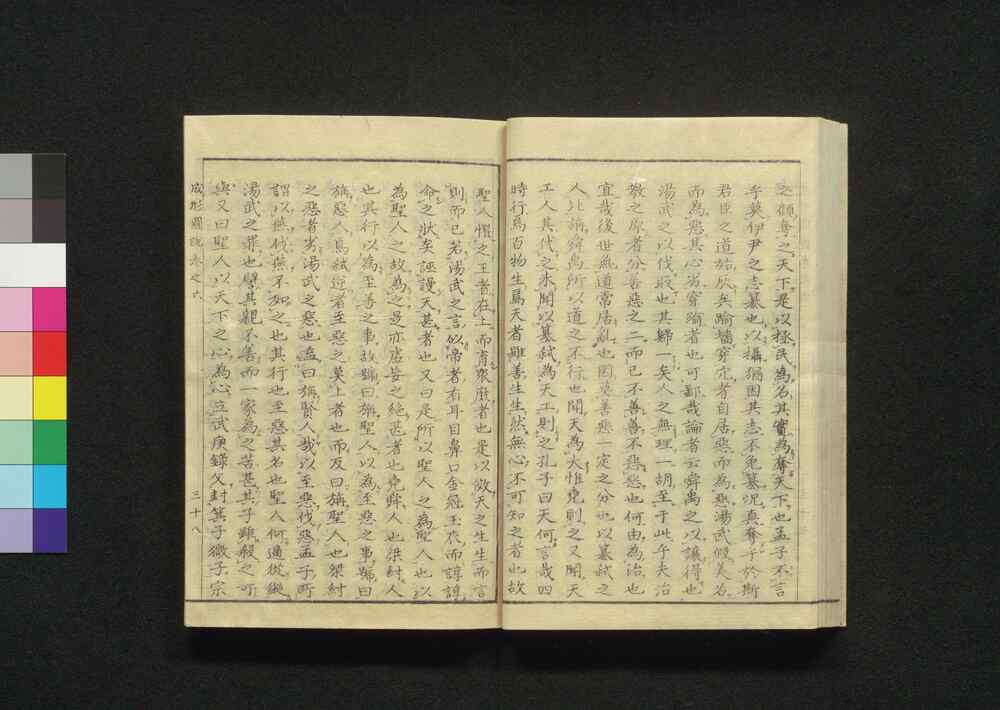 之顧奪之天下是以拯民為名其實為奪天下也孟子不言
乎莫伊尹之志簒也以攝猶因其志不免簒况真奪乎於斯
君臣之道始於矣踰墻穿穴者自居惡而為惡湯武假美名
而為惡其心劣穿踰者也可鄙哉論者云舜禹之以讓得也
湯武之以伐取也其歸一矣人之無理一胡至于此乎夫治
教之原者分善惡之二而已不善善不惡惡也何由為治也
宜哉後世無道常居亂也因莫善惡一定之分也以簒弑之
人比稱舜禹所以道之不行也聞天為大惟堯則之又聞天
工人其代之未聞以簒弑為天工則之孔子曰天何言哉四
時行焉百物生焉天者雖善生生然無心不可知之者也故
聖人惧之王者在上而育衆庶者也是以做天之生生而言
則而已若湯武之言似帝者有耳目鼻口金冠玉衣而諄諄
命之狀矣誣謾天甚者也又曰是所以聖人之為聖人也以
為聖人之故為之是亦虚妄之絶甚者也堯舜人也桀紂人
也其行以為至善之事故歸曰稱聖人以為至惡之事歸曰
稱惡人焉弑逆者至惡之莫上者也而反曰稱聖人也桀紂
之惡者劣湯武之惡也盍曰稱賢人哉以至惡伐惡孟子所
謂以燕伐燕不如之也其行也至惡其名也聖人何適從縱
湯武之罪也譬其親不善而一家為之苦甚其子雖殺之可
與又曰聖人以天下之心為心立武庚錄父封箕子微子宗
成形圖説卷之六
三十八